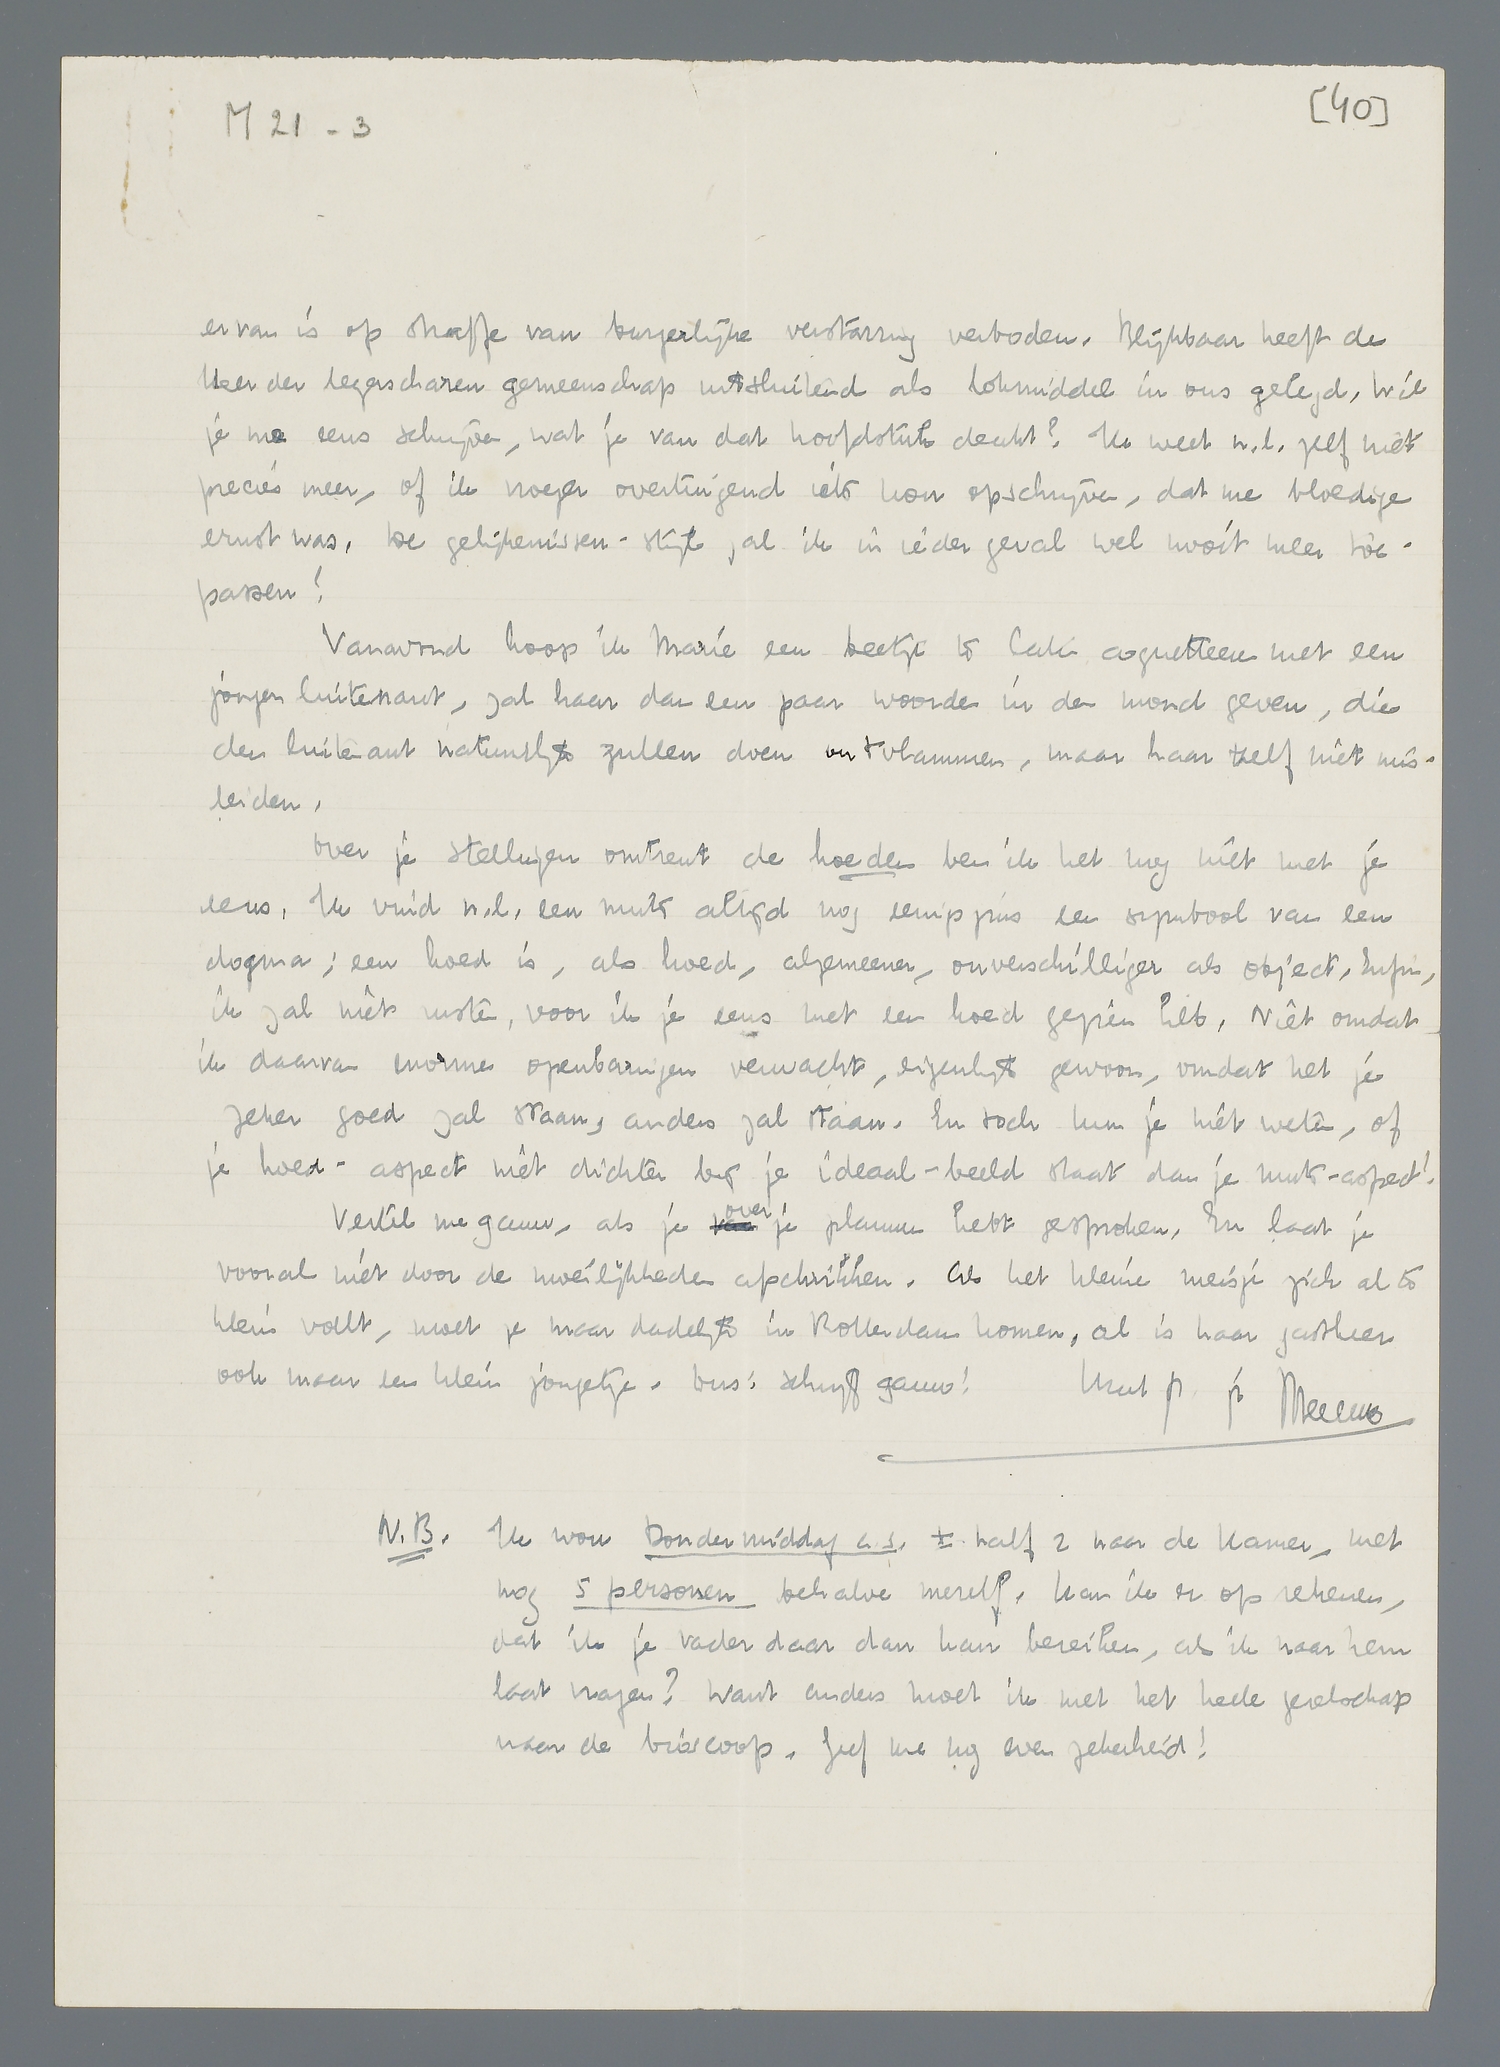 M 21 - 3
[40]
ervan is op straffe van burgerlijke verstarring verboden. Blijkbaar heeft de
Heer der legerscharen gemeenschap uitsluitend als lokmiddel in ons gelegd. Wil
je me eens schrijven, wat je van dat hoofdstuk denkt? Ik weet n.l. zelf niet
precies meer, of ik vroeger overtuigend iets kon opschrijven, dat me bloedige
ernst was. De gelijkenissen-stijl zal ik in ieder geval wel nooit meer toe-
passen!
Vanavond hoop ik Marie een beetje te laten coquetteeren met een
jongen luitenant, zal haar dan een paar woorden in den mond geven, die
den luitenant natuurlijk zullen doen ontvlammen, maar haar zelf niet mis-
leiden.
Over je stellingen omtrent de hoeden ben ik het nog niet met je
eens. Ik vind n.l. een muts altijd nog eenigszins een symbool van een
dogma; een hoed is, als hoed, algemeener, onverschilliger als object. Enfin,
ik zal niet rusten, voor ik je eens met een hoed gezien heb. Niet omdat
ik daarvan enorme openbaringen verwacht, eigenlijk gewoon, omdat het je
zeker goed zal staan, anders zal staan. En toch kun je niet weten, of
je hoed-aspect niet dichter bij je ideaal-beeld staat dan je muts-aspect!
Vertel me gauw, als je over je plannen hebt gesproken. En laat je
vooral niet door de moeilijkheden afschrikken. Als het kleine meisje zich al te
klein voelt, moet ze maar dadelijk in Rotterdam komen, al is haar gastheer
ook maar een klein jongetje. Dus: schrijf gauw! je Menno
N.B. Ik wou Dondermiddag a.s. ± half 2 naar de Kamer, met
nog 5 personen behalve mezelf. Kan ik er op rekenen,
dat ik je vader daar dan kan bereiken, als ik naar hem
laat vragen? Want anders moet ik met het heele gezelschap
naar de bioscoop. Geef me nog even zekerheid!